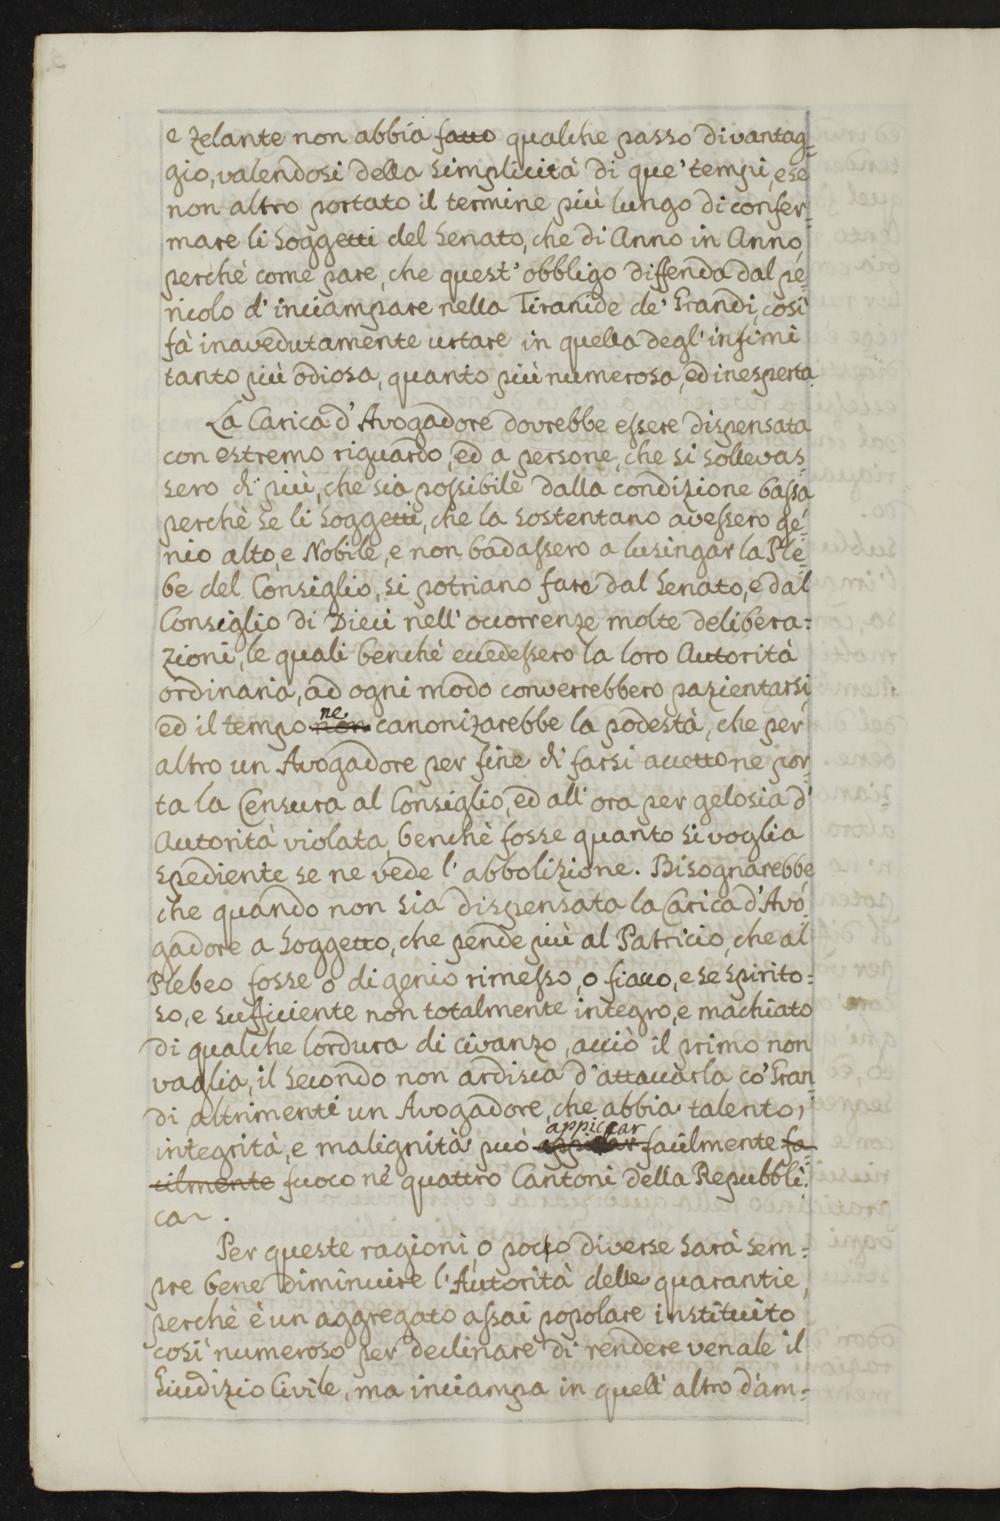 e zelante non abbia fatto qualche passo di vantag=
gio, valendosi della simplicità di que' tempi, e se
non altro portato il termine più lungo di confer=
mare li Soggetti del Senato, che di Anno in Anno,
perchè come pare, che quest' obbligo diffenda dal pe=
ricolo d' inciampare nella Tiranide de' Grandi, così
fà inavedutamente urtare in quella degl' infimi
tanto più odiosa, quanto più numerosa, ed inesperta.
La Carica d' Avogadore dovrebbe essere dispensata
con estremo riguardo, ed a persone, che si sollevas=
sero di più, che sia possibile dalla condizione bassa
perchè se li Soggetti, che la sostentano avessero ge=
nio alto, e Nobile, e non badassero a lusingar la Ple=
be del Consiglio, si potriano fare dal Senato, e dal
Consiglio di Dieci nell' occorrenze molte delibera=
zioni, le quali benchè eccedessero la loro Autorità
ordinaria, ad ogni modo converrebbero pazientarsi,
ed il tempo non ne canonizarebbe la podestà, che per
altro un Avogadore per fine di farsi accetto ne por=
ta la Censura al Consiglio, ed all' ora per gelosia d'
Autorità violata, benchè fosse quanto si voglia
spediente se ne vede l' abbolizione. Bisognarebbe
che quando non sia dispensata la Carica d' Avo=
gadore a Soggetto, che pende più al Patricio, che al
Plebeo fosse o di genio rimesso, o fiacco, e se spirito=
so, e sufficiente non totalmente integro, e machiato
di qualche lordura di civanzo, acciò il primo non
vaglia, il secondo non ardisca d' attaccarla co' Gran=
di altrimenti un Avogadore, che abbia talento,
integrità, e malignità può appiccar facilmente fa=
cilmente fuoco ne' quattro Cantoni della Repubbli=
ca.
Per queste ragioni, o poco diverse sarà sem=
pre bene diminuire l' Autorità delle quarantie,
perchè è un aggregato assai popolare instituito
così numeroso per declinare di rendere venale il
Giudizio Civile, ma inciampa in quell' altro d' am=